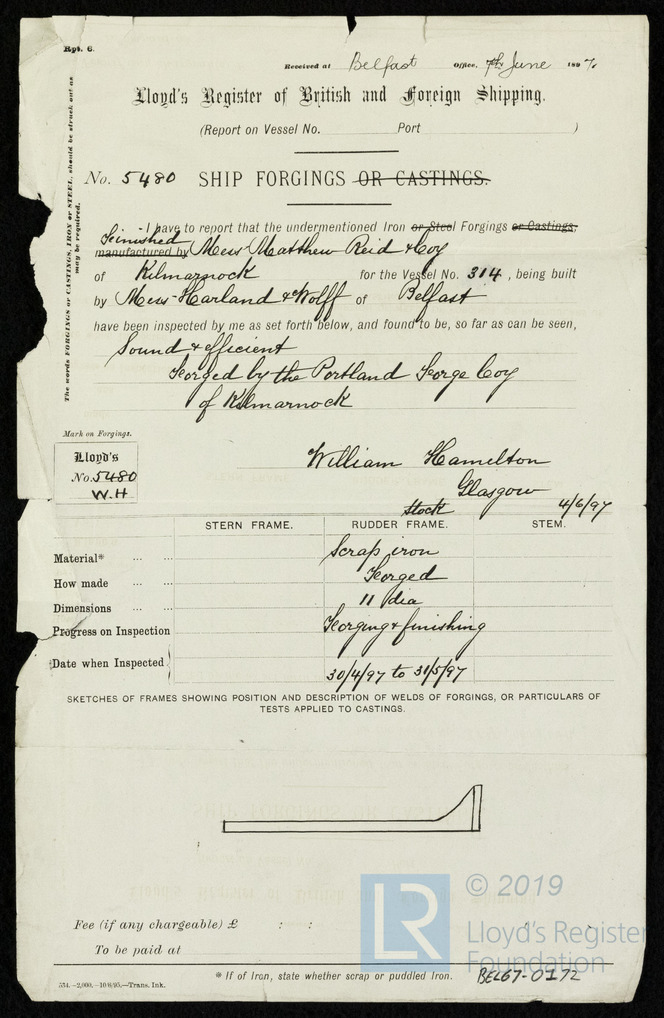 Rpt. 6.
Received at Belfast Office, 7th June 1897.
Lloyd's Register of British and Foreign Shipping.
(Report on Vessel No. Port )
No. 5480 SHIP FORGINGS OR CASTINGS.
The words FORGINGS or CASTINGS, IRON or STEEL, should be struck out as may be required.
I have to report that the undermentioned Iron or Steel Forgings or Castings,
Finished
manufactured by Mess Matthew Reid & Coy
of Kilmarnock for the Vessel No. 314, being built
by Mess Harland & Wolff of Belfast
have been inspected by me as set forth below, and found to be, so far as can be seen,
Sound & efficient
Forged by the Portland Forge Coy
of Kilmarnock
Mark on Forgings.
Lloyd's
No. 5480
W.H
William Hamelton
Glasgow
4/6/97
stock
STERN FRAME. RUDDER FRAME. STEM.
Material* ... ... Scrap iron
How made ... ... Forged
Dimensions ... ... 11 dia
Progress on Inspection Forging & finishing
Date when Inspected 30/4/97 to 31/5/97
SKETCHES OF FRAMES SHOWING POSITION AND DESCRIPTION OF WELDS OF FORGINGS, OR PARTICULARS OF
TESTS APPLIED TO CASTINGS.
Fee (if any chargeable) £ : :
To be paid at
* If of Iron, state whether scrap or puddled Iron.
554.—2,000.—10/6/95.—Trans. Ink.
BEL67-0172
LR
© 2019
Lloyd's Register
Foundation